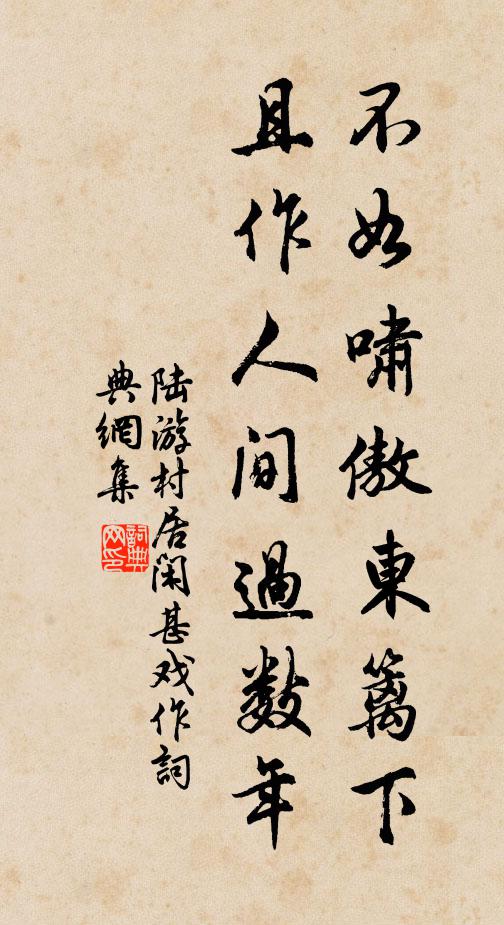 不如啸傲東篱下
且作人间過数年
陆游村居闲甚戏作詞
典網集
詞典
网印